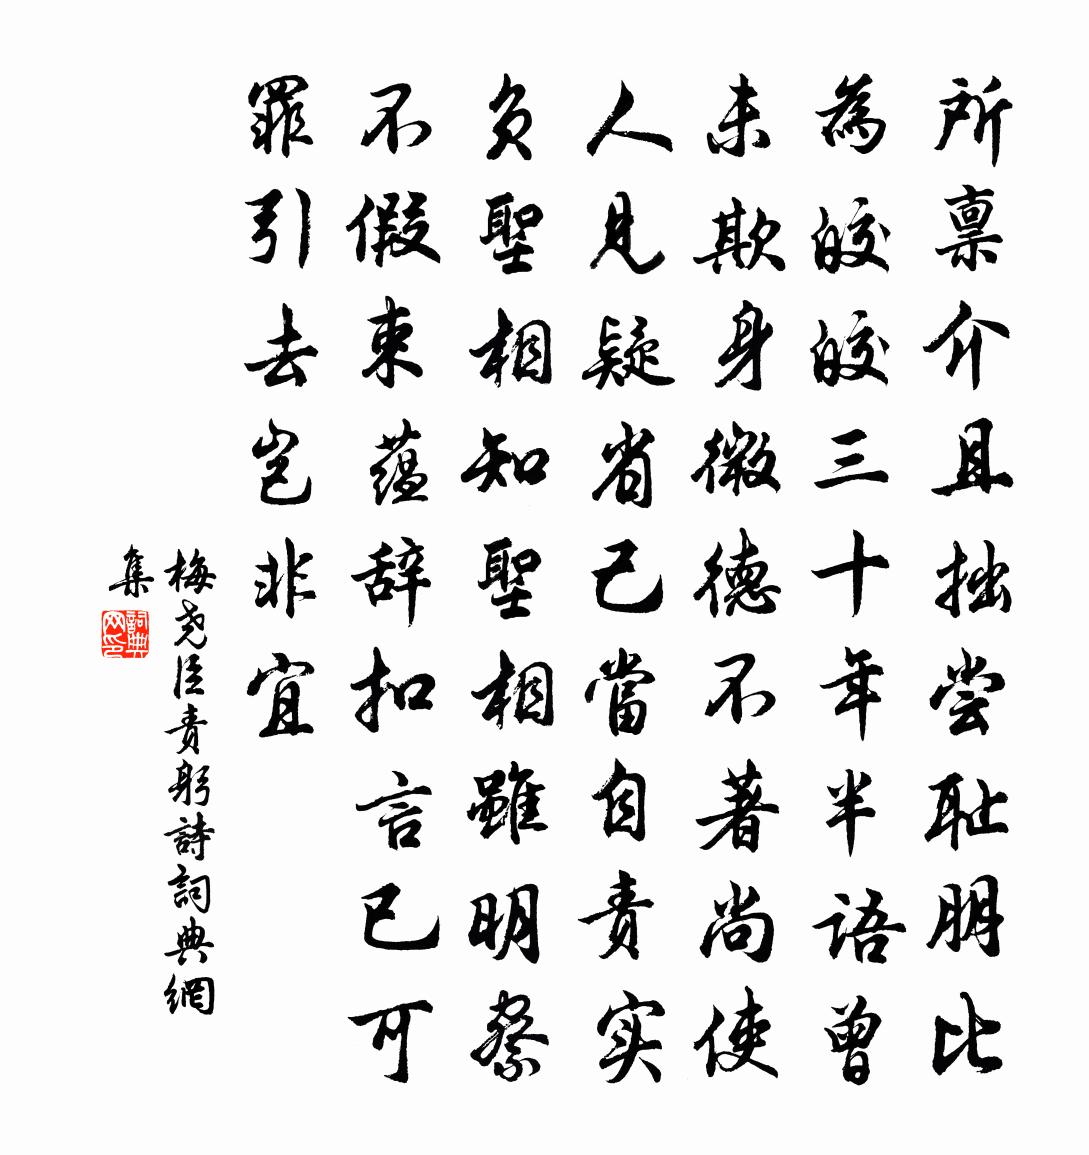 所禀介且拙尝耻朋比
為皎皎三十年半語曾
未欺身微德不著尚使
人見疑省己當自責实
负聖相知聖相雖明察
不假束蕴辞扣言已可
罪引去岂非宜
梅尧臣責躬詩詞典網
集
詞典网印